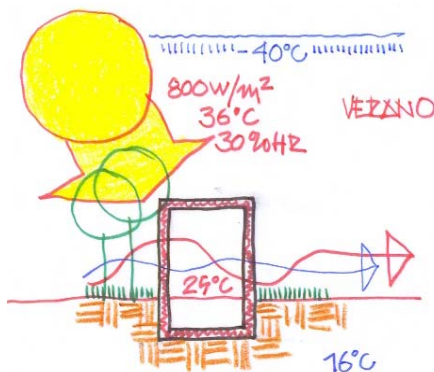 -40°C
800W/m²
36°C
30%HR
VERANO
25°C
16°C